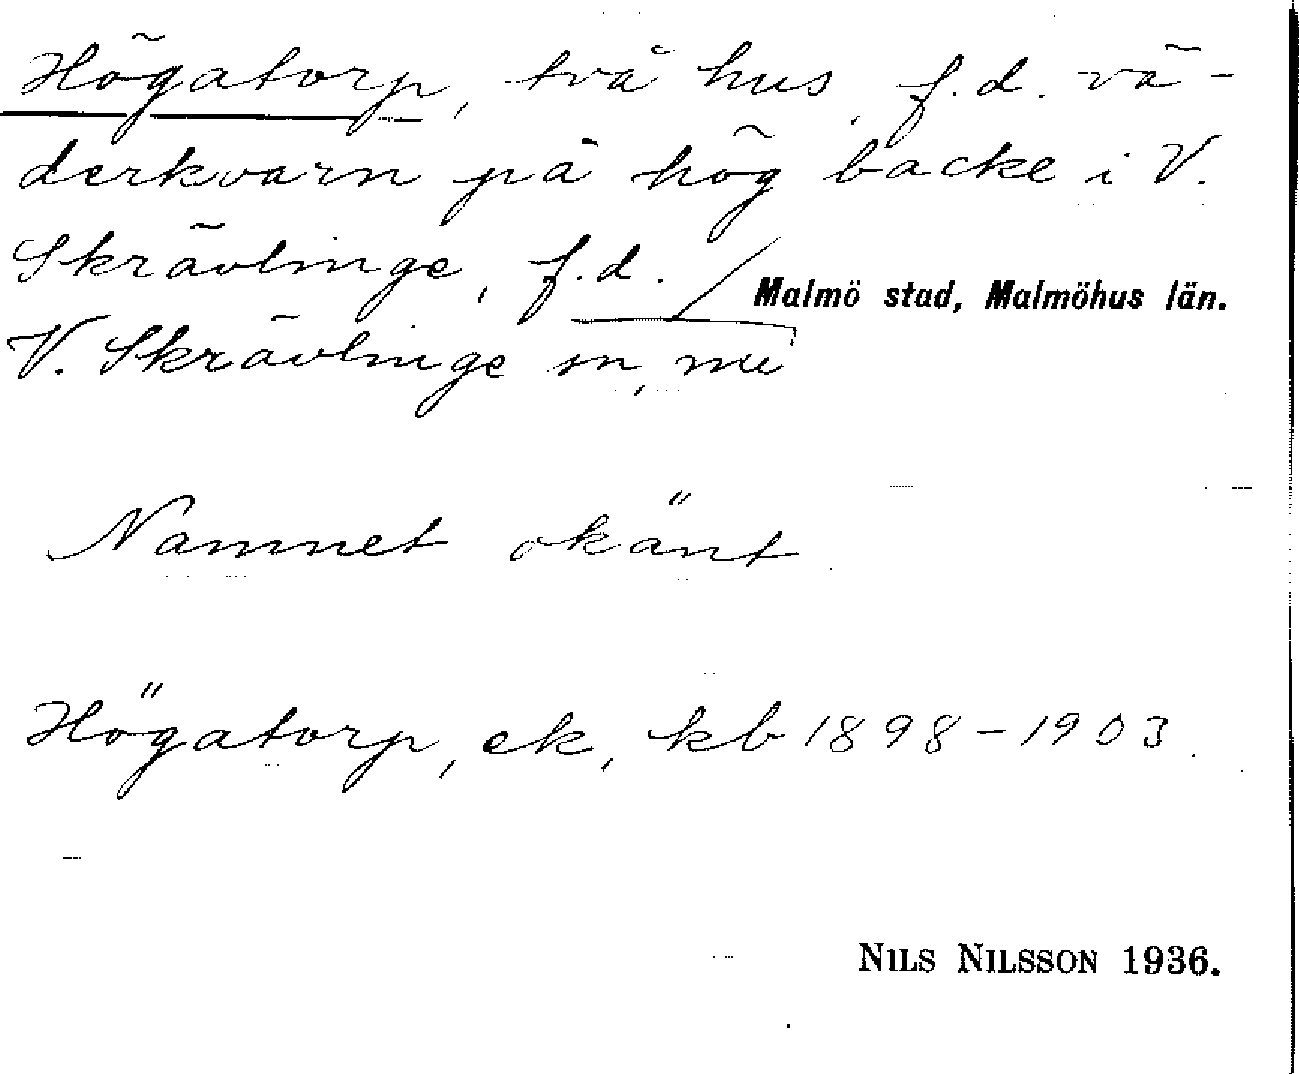 Högatorp, två hus, f.d. vä-
derkvarn på hög backe i V.
Skrävlinge, f.d.
Malmö stad, Malmöhus län.
V. Skrävlinge sn, nu
Namnet okänt
Högatorp, ek, kb 1898-1903.
NILS NILSSON 1936.